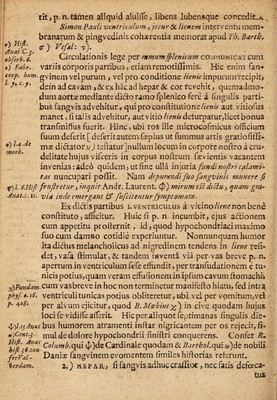 rit, p. n. tamen aliquid aluisse, libens lubensque concedit.
Simon Pauli ventriculum, jecur & lienem interventu mem-
branarum & pingvedinis cohærentia memorat apud Th. Barth.
σ) Vesal: τ).
Circulationis lege per ramum splenicum COMMUNICAT cum
variis corporis partibus, etiam remotissimis. Hic enim san-
gvinem vel purum, vel pro conditione lienis impurum recipit,
dein ad cavam, & ex hac ad hepar & cor revehit, quemadmo-
dum aortæ mediante dicto ramo splenico ferè à singulis parti-
bus sangvis advehitur, qui pro constitutione lienis aut vitiosus
manet, si talis advehitur, aut vitio lienis deturpatur, licet bonus
transmissus fuerit. Hinc, ubi ros ille microcosmicus officium
suum deserit [deserit autem sepius ut summus artis gratiosissi-
mæ dictator υ) testatur ]nullum locum in corpore nostro à cru-
delitate hujus visceris in corpus nostrum sævientis vacantem
invenias: adeò quidem, ut sine ulla injuria fundi nostri calami-
tas nuncupari possit. Nam depurandi suo sangvinis munere si
frustretur, inquit Andr. Laurent. Φ) mirum est dictu, quam gra-
via inde emergant & suscitentur symptomata.
Ex dictis partibus I. VENTRICULUS à vicino liene non benè
constituto, afficitur. Huic si p. n. incumbit, ejus actionem
cum appetitu prosternit. id, quod hypochondriaci maximo
suo cum damno cotidiè experiuntur. Nonnunquam humor
ita dictus melancholicus ad nigredinem tendens in liene resi-
det, vasa stimulat, & tandem inventâ viâ per vas breve p. n.
apertum in ventriculum sese effundit, per transudationem è tu-
nicis potius, quam veram effusionem in ipsum cavum stomachi
cum vas breve in hoc non terminetur manifesto hiatu, sed intra
ventriculi tunicas potius obliteretur, ubi vel per vomitum, vel
per alvum ejicitur, quod B. Mœbius χ) in cive quodam hujus
loci se vidisse asserit. Hic per aliquot septimanas singulis die-
bus humorem atramenti instar nigricantem per os rejecit, si-
mul de dolore hypochondrii sinistri conquerens. Confer R.
Columb. qui ψ) de Cardinale quodam & Barthol. qui ω) de nobili
Daniæ sangvinem evomentem similes historias referunt.
2.) HEPAR, si sangvis adhuc crassior, nec satis defeca-
tus